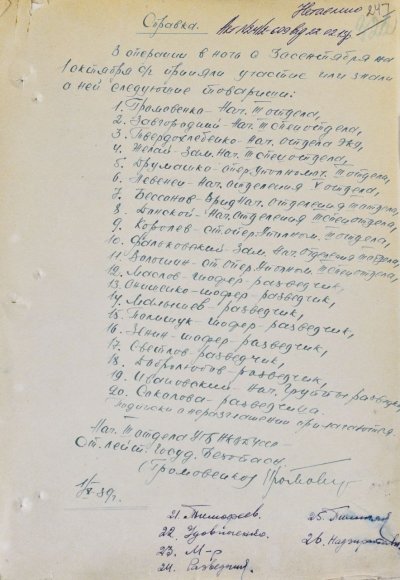 Справка.
247
В операции в ночь с 30 сентября на
1 октября с/г приняли участие или знали
о ней следующие товарищи:
1. Громовенко - Нач. III отдела,
2. Завгородний - Нач. III спецотдела,
3. Твердохлебенко - Нач. отдела ЭКУ,
4. Желай - Зам. Нач. III спецотдела,
5. Друмашко - опер. уполномоч. III отдела,
6. Певень - Нач. отделения X отдела,
7. Бессонов - Врид Нач. отделения III отдела,
8. Нач. отделения III спецотдела,
9. Королев - ст. опер. уполном. III отдела,
10. Фальковский - Зам. Нач. отделения III отдела,
11. Волошин - ст. опер. уполном. III спецотдела,
12. Маслов - шофер разведчик,
13. Онищенко - шофер разведчик,
14. шофер разведчик,
15. Полищук - шофер разведчик,
16. Зенин - шофер разведчик,
17. Светлов - разведчик,
18. Добролюбов - разведчик,
19. Ивановский - Нач. группы разведки
20. Соколова - разведчица.
Подписки о неразглашении прилагаются.
Нач. III отдела УГБ НКВД УССР
Ст. лейт. Госуд. Безопасн.
(Громовенко)
1/X-39г.
21. Тимофеев.
22. Удовиченко.
23. М-р
24. Разведчик.
25.
26.